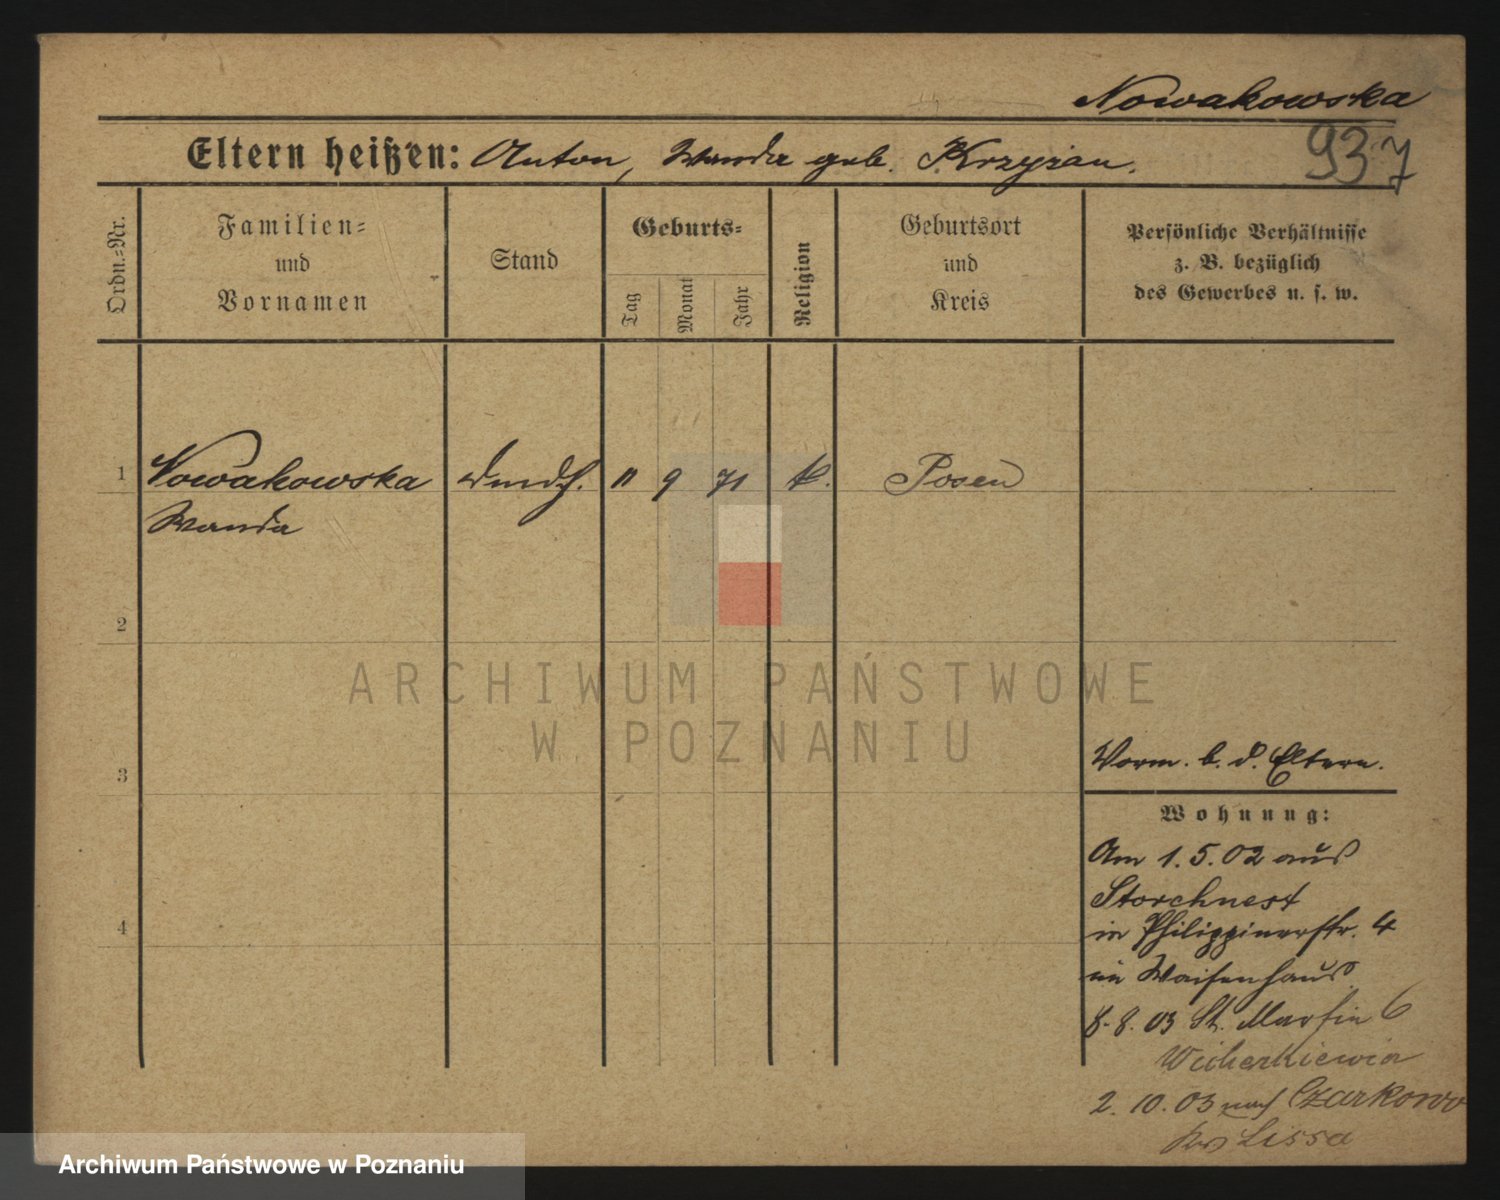 Nowakowska
937
Eltern heißen: Anton, Wanda geb. Krzyżan.
Ordn.-Nr.
Familien-
und
Vornamen
Stand
Geburts-
Tag
Monat
Jahr
Religion
Geburtsort
und
Kreis
Persönliche Verhältnisse
z. B. bezüglich
des Gewerbes u. s. w.
1 Nowakowska 11 9 71 k. Posen
Wanda
2
ARCHIWUM PAŃSTWOWE
W POZNANIU
3
Vorm. b. d. Eltern.
Wohnung:
Am 1.5.02 aus
Storchnest
4
in Philippinerstr. 4
im Waisenhaus
8.8.03 St. Martin 6
2.10.03 nach Czarkowo
Krs Lissa
Archiwum Państwowe w Poznaniu